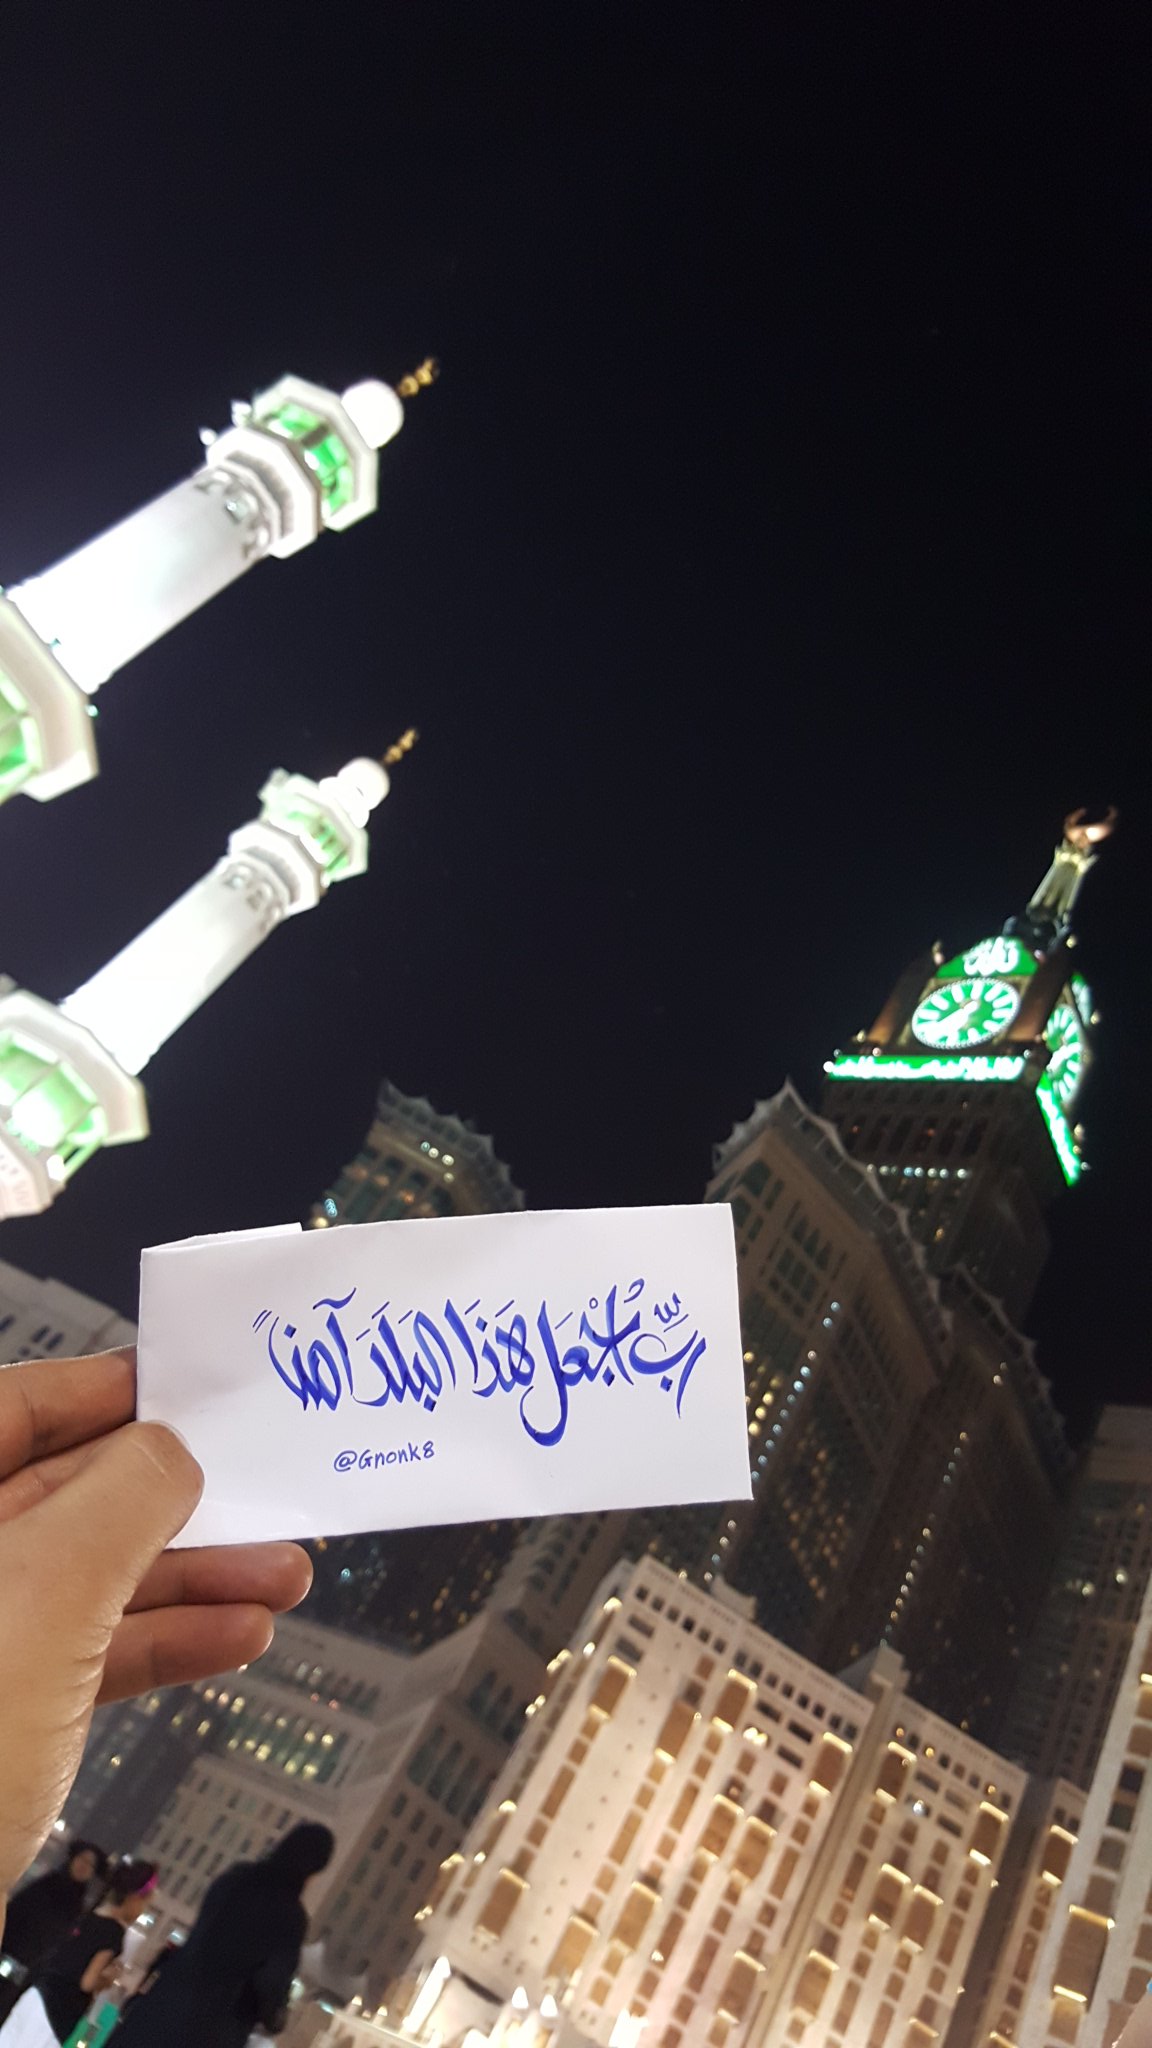 رَبِّ اجْعَل هَذَا البَلَدَ آمناً
@Gnonk8